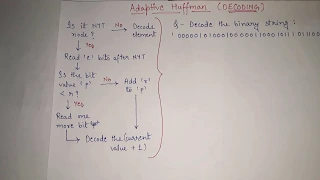 Adaptive Huffman (DECODING)
Is it NYT node?
No
Decode element
Yes
Read 'e' bits after NYT
Is the bit value 'p' < r?
No
Add 'r' to 'p'
Yes
Read one more bit
Decode the (current value + 1)
Q - Decode the binary string :